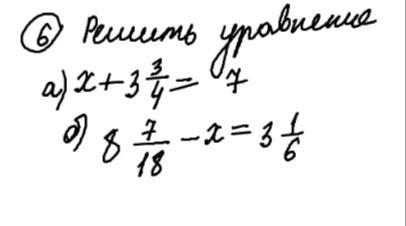 6 Решить уравнение
а) x + 3 3/4 = 7
б) 8 7/18 - x = 3 1/6